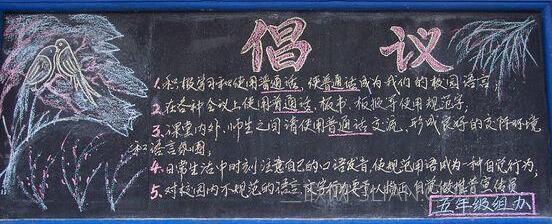 倡 议
1.积极学习和使用普通话，使普通话成为我们的校园语言；
2.在各种会议上使用普通话，板书、板报等使用规范字；
3.课堂内外，师生之间请使用普通话交流，形成良好的交际环境
和语言氛围；
4.日常生活中时刻注意自己的口语发音，使规范用语成为一种自觉行为；
5.对校园内不规范的语言文字行为予以指正，自觉做推普宣传员
五年级组办